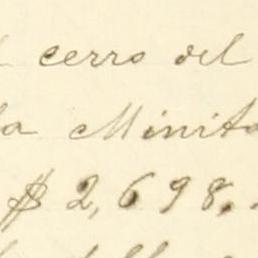 cerro del
la Minita
$ 2,698.